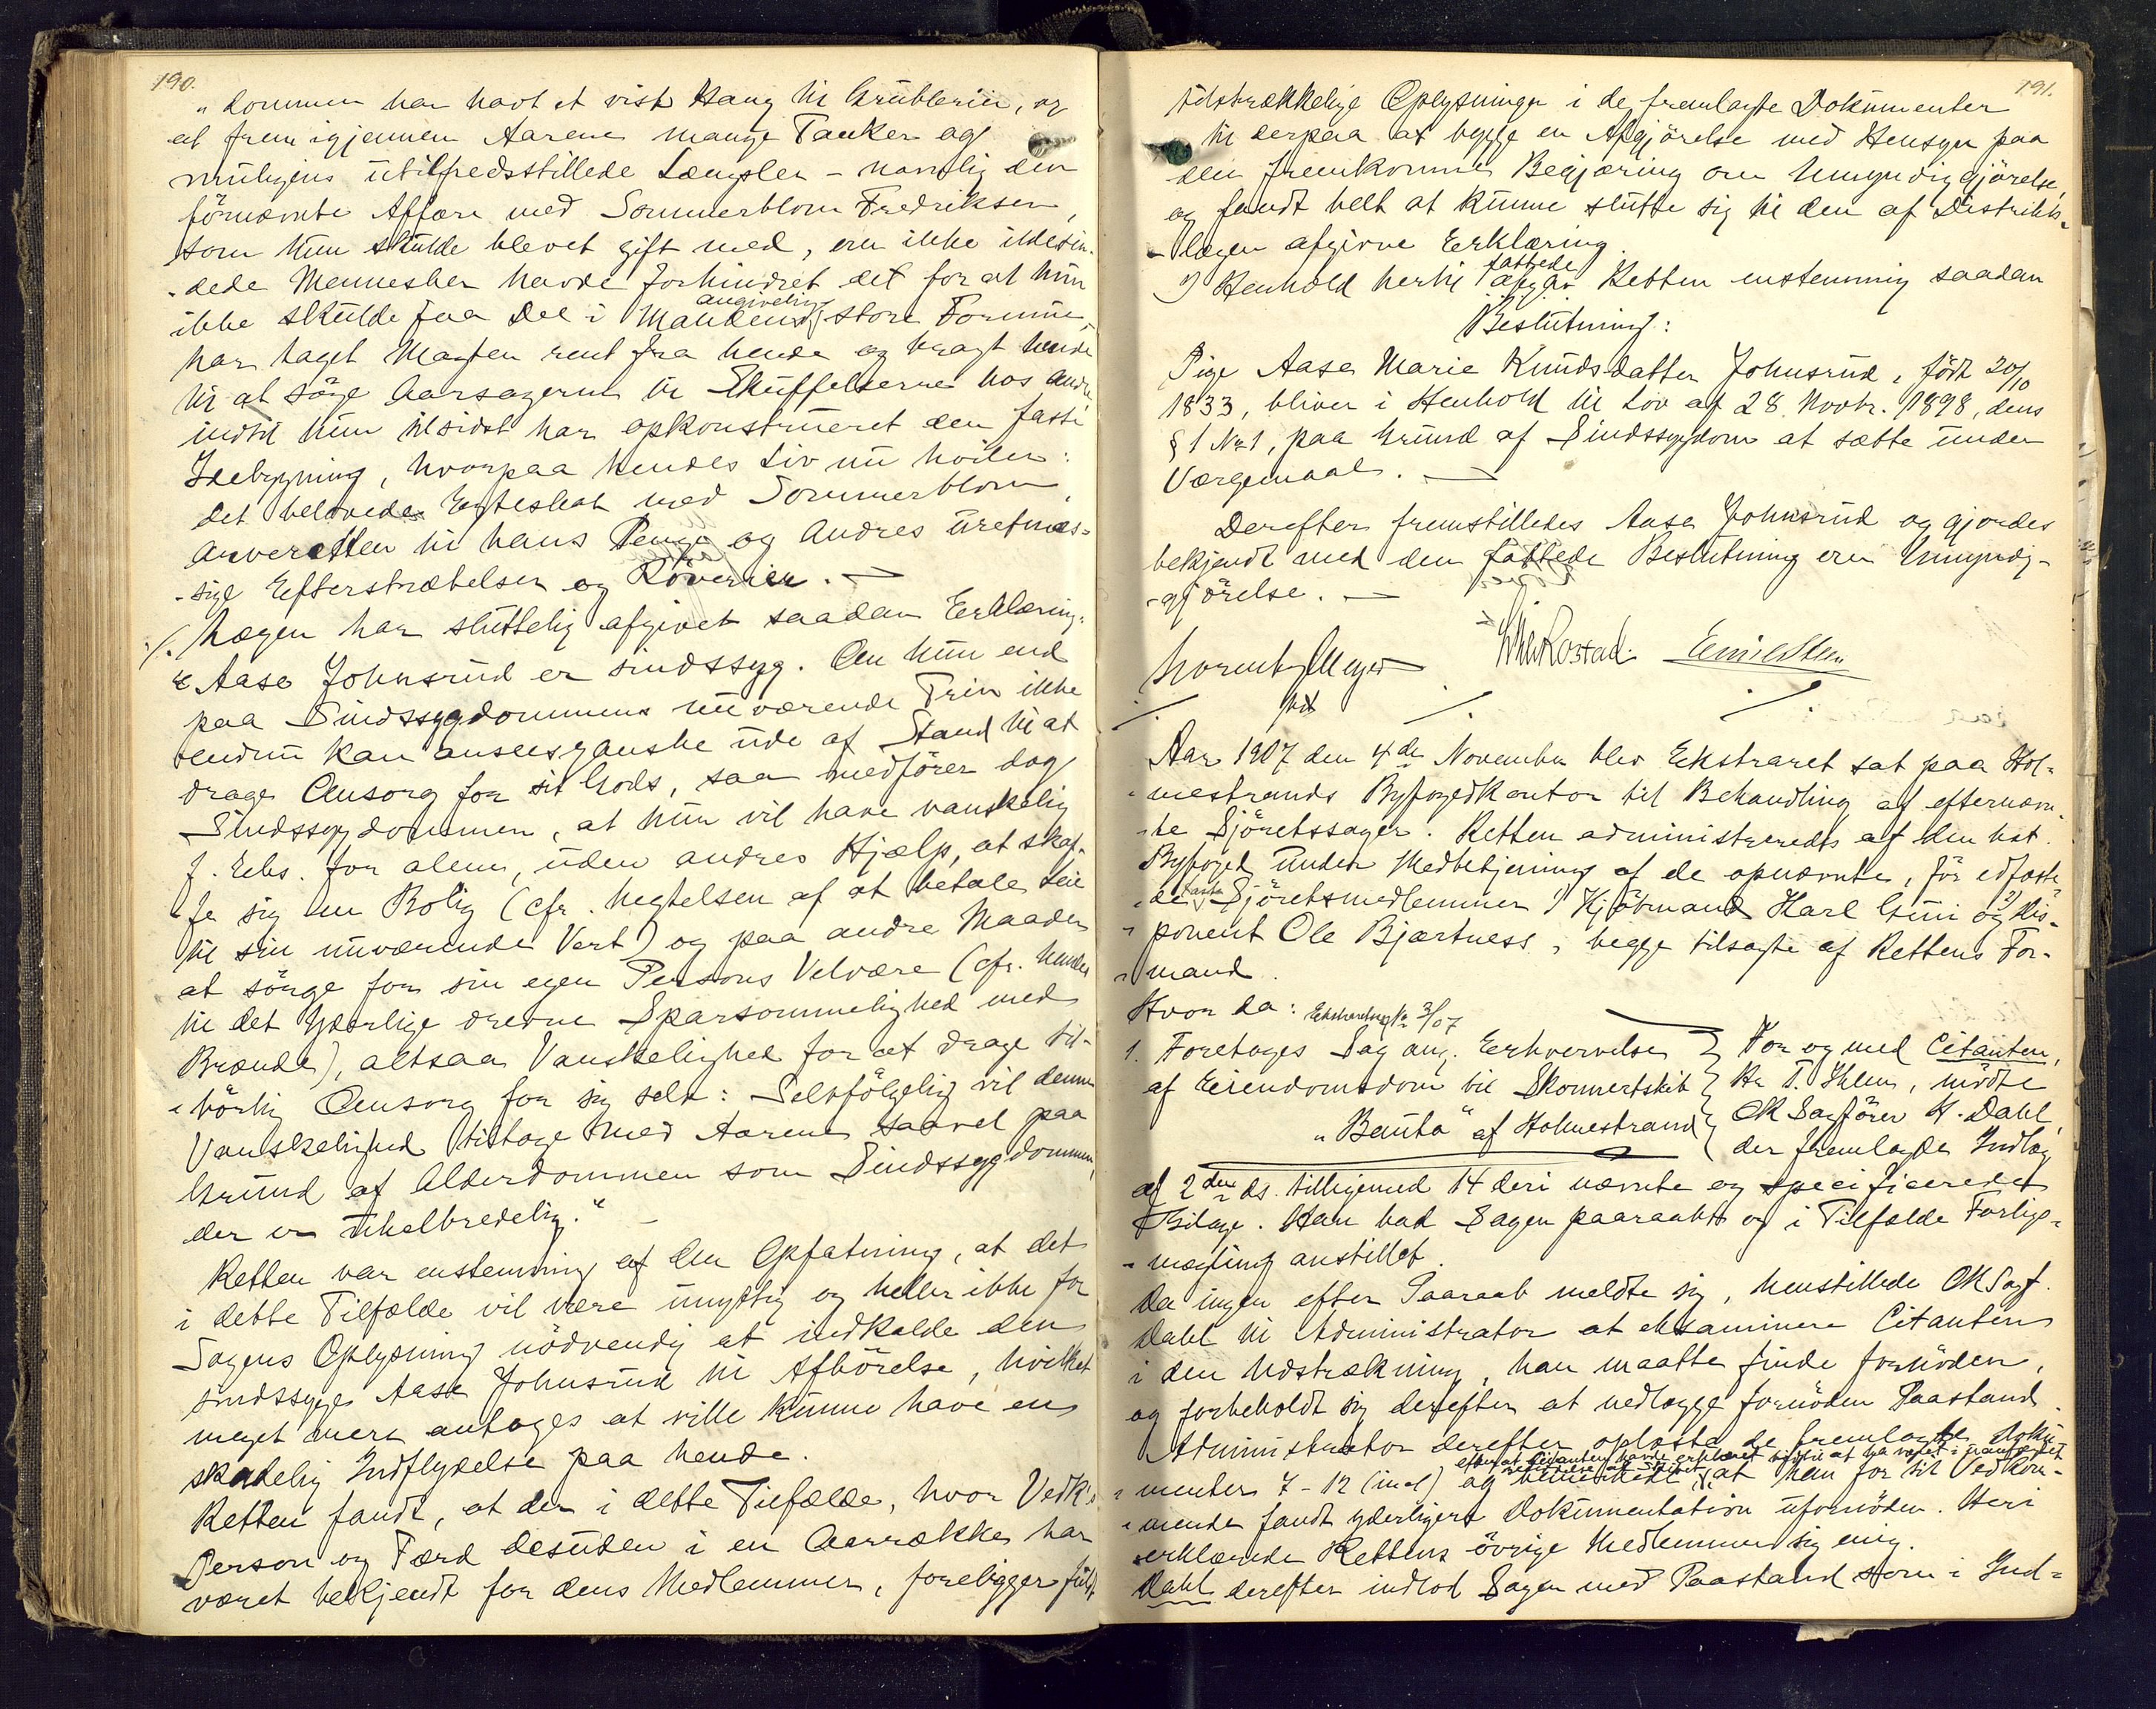 190.
"dommen har havt et vist Hang til Grublerier, og
at frem igjennem Aarene mange Tanker og
muligens utilfredsstillede Længsler - navnlig den
förnævnte Affære med Sommerblom Fredriksen,
som hun skulde blevet gift med, om ikke ildesin-
-dede Mennesker havde forhindret det for at hun
angivelig
ikke skulde faa Del i Mandens store Formue,
har taget Magten rent fra hende og bragt hende
til at söge Aarsagerne til Skuffelserne hos andre
indtil hun tilsidst har opkonstrueret den faste
Idebygning, hvorpaa hendes Liv nu hviler:
det belovede Egteskab med Sommerblom,
Arveretten til hans Penge og Andres uretmæs-
-sige Efterstræbelser og Röverier. —
./. Lægen har sluttelig afgivet saadan Erklæring:
"Aase Johnsrud er sindssyg. Om hun end
paa Sindssygdommens nuværende Trin ikke
endnu kan ansees ganske ude af Stand til at
drage Omsorg for sit Gods, saa medförer dog
Sindssygdommen, at hun vil have vanskelig
f. Eks. for alene, uden andres Hjælp, at skaf-
-fe sig en Bolig (cfr. Negtelsen af at betale Leie
til sin nuværende Vert) og paa andre Maader
at sörge for sin egen Persons Velvære (cfr. hendes
til det Yderlige drevne Sparsommelighed med
Brænde), altsaa Vanskelighed for at drage til-
-börlig Omsorg for sig selv: Selvfölgelig vil denne
Vanskelighed tiltage med Aarene saavel paa
Grund af Alderdommen som Sindssygdommen,
der er uhelbredelig." —
Retten var enstemmig af den Opfatning, at det
i dette Tilfælde vil være unyttig og heller ikke for
Sagens Oplysning nödvendig at indkalde den
sindssyge Aase Johnsrud til Afhörelse, hvilket
meget mere antages at ville kunne have en
skadelig Indflydelse paa hende.
Retten fandt, at der i dette Tilfælde, hvor Vedk's
Person og Færd desuden i en Aarrække har
været bekjendt for dens Medlemmer, foreligger fuldt
191.
tilstrækkelige Oplysninger i de fremlagte Dokumenter
til derpaa at bygge en Afgjörelse med Hensyn paa
den fremkomne Begjæring om Umyndiggjörelse,
og fandt helt at kunne slutte sig til den af Distrikts-
-lægen afgivne Erklæring.
fattede
I Henhold hertil afgav Retten enstemmig saadan
Beslutning:
Pige Aase Marie Knudsdatter Johnsrud, födt 20/10
1833, bliver i Henhold til Lov af 28 Novbr. 1898, dens
§ 1 No 1, paa Grund af Sindssygdom at sætte under
Værgemaal. —
Derefter fremstilledes Aase Johnsrud og gjordes
bekjendt med den fattede Beslutning om Umyndig-
-gjörelse. —
Lorentz Meyer
Rostad. Emil Steen
Aar 1907 den 4de November blev Ekstraret sat paa Hol-
-mestrands Byfogedkontor til Behandling af efternævn-
-te Sjöretssager. Retten administreredes af den kst.
Byfoged under Medbetjening af de opnævnte, för edfæste-
faste
-de Sjöretsmedlemmer 1) Kjöbmand Karl Gui og 2) Dis-
-ponent Ole Bjærtness, begge tilsagte af Rettens For-
-mand.
Hvor da: Ekstraretssag No 3/07
1. Foretages Sag ang. Erhvervelse
af Eiendomsdom til Skonnertskib
"Bauta" af Holmestrand
For og med Citanten,
Hr T. Ihlen, mödte
OR Sagförer H. Dahl,
der fremlagde Indlæg
af 2den ds. tilligemed 14 deri nævnte og specificerede
Bilage. Han bad Sagen paaraabt og i Tilfælde Forligs-
-mægling anstillet.
Da ingen efter Paaraab meldte sig, henstillede OR Sagf.
Dahl til Administrator at eksaminere Citanten
i den Udstrækning, han maatte finde fornöden,
og forbeholdt sig derefter at nedlægge fornöden Paastand.
Administrator derefter oplæste de fremlagte Doku-
efter at Citanten havde erklæret
-menter 7-12 (incl) og at han for sit Vedkom-
-mende fandt yderligere Dokumentation ufornöden. Heri
erklærede Rettens övrige Medlemmer sig enig.
Dahl derefter indlod Sagen med Paastand som i Ind-